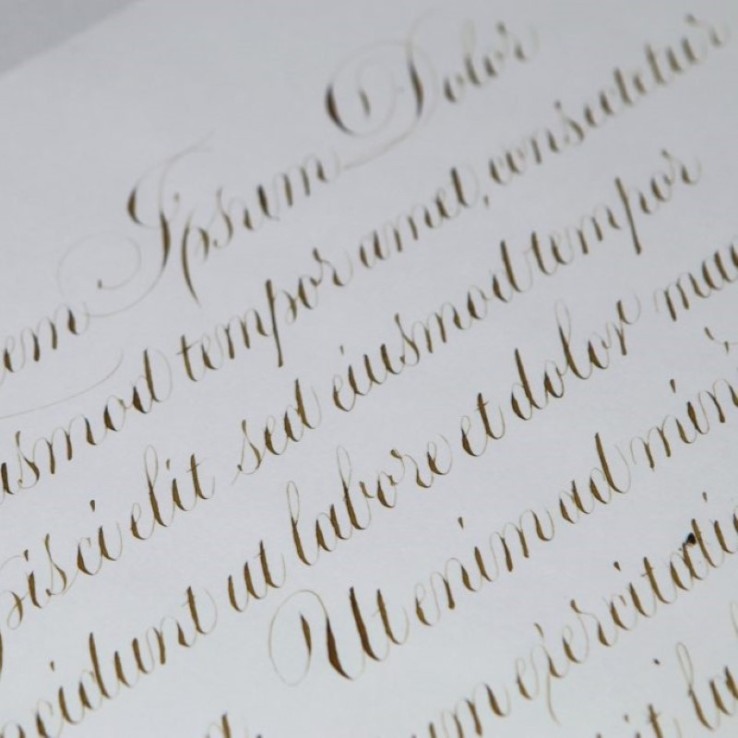 em Ipsum Dolor
usmod tempor amet, consectetur
pisci elit sed eiusmod tempor
cidunt ut labore et dolor ma
a. Ut enim ad mini
um exercitatio
it la